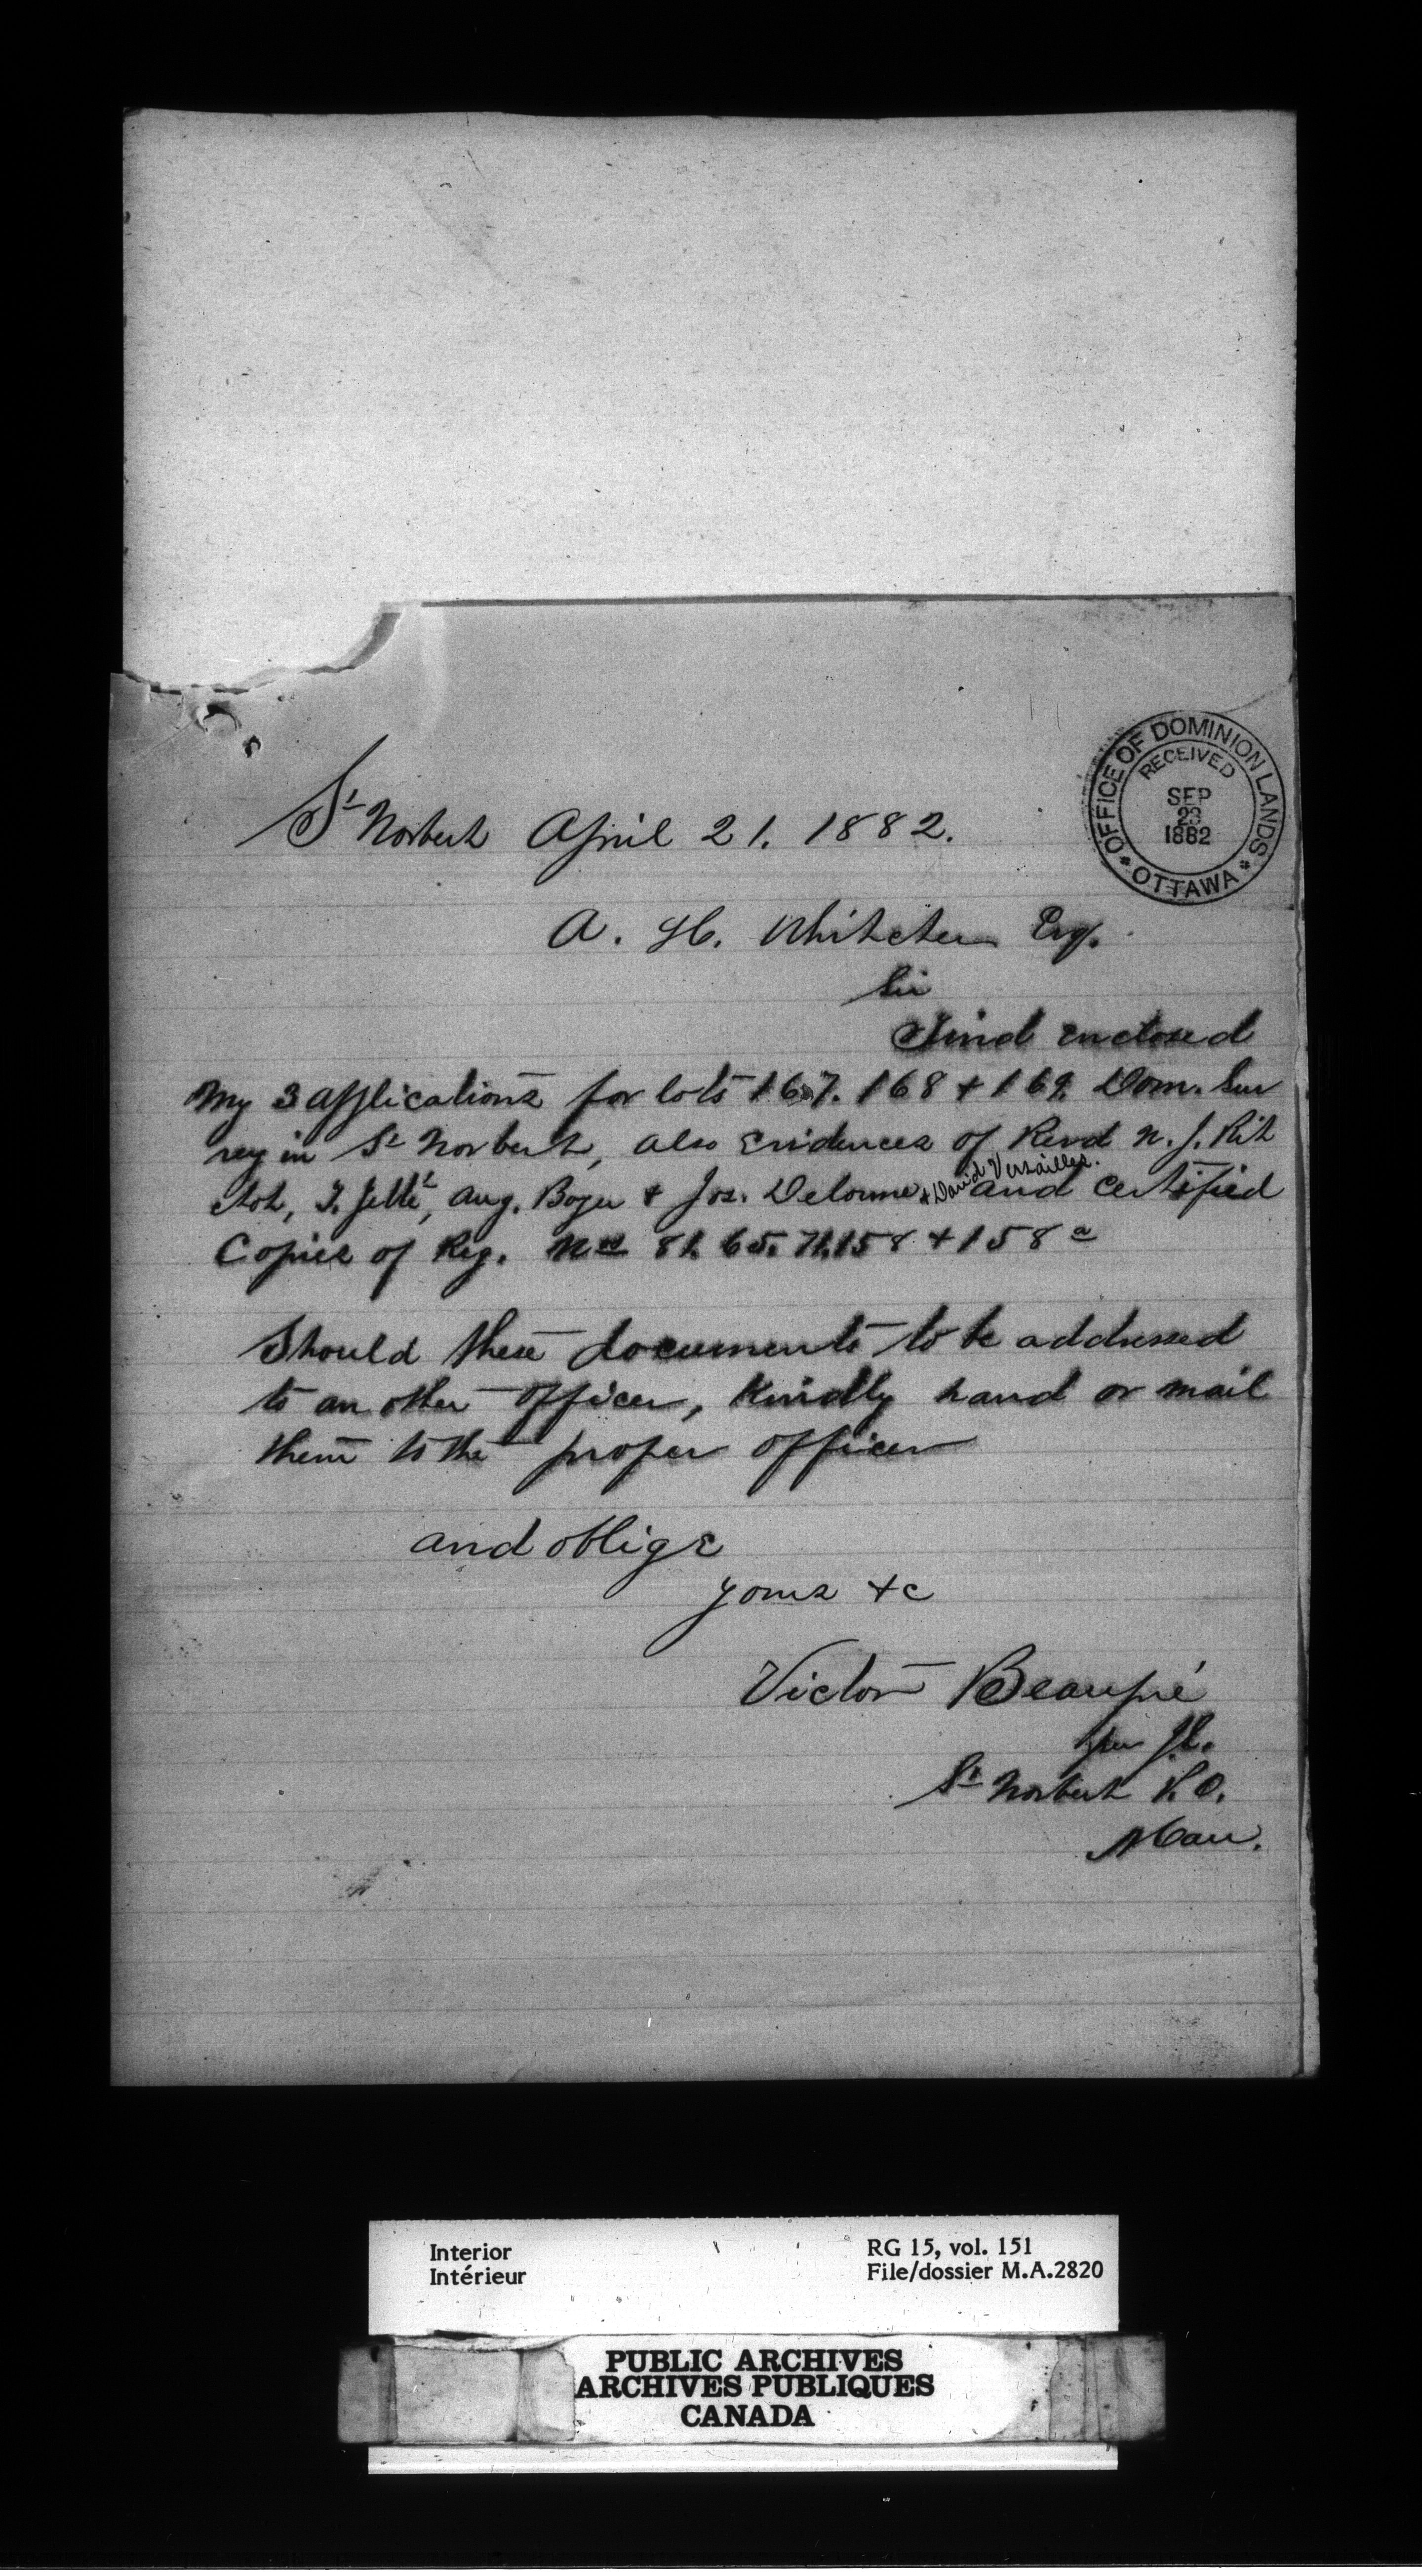 OFFICE OF DOMINION LANDS
RECEIVED
SEP
23
1882
OTTAWA
St Norbert April 21. 1882.
A. H. Whitcher Esq.
Sir
Find enclosed
My 3 applications for lots 167. 168 + 169. Dom. Sur
vey in St Norbert, also Evidences of Revd N. J. Rit
chot, T. Jetté, Aug. Boyer + Jos. Delorme + David Versailles. and certified
Copies of Reg. Nos 81. 65. 71. 158 + 158 a
Should these documents to be addressed
to an other officer, Kindly hand or mail
them to the proper officer
and oblige
yours +c
Victor Beaupré
per
St Norbert P.O.
Man.
Interior
Intérieur
RG 15, vol. 151
File/dossier M.A.2820
PUBLIC ARCHIVES
ARCHIVES PUBLIQUES
CANADA